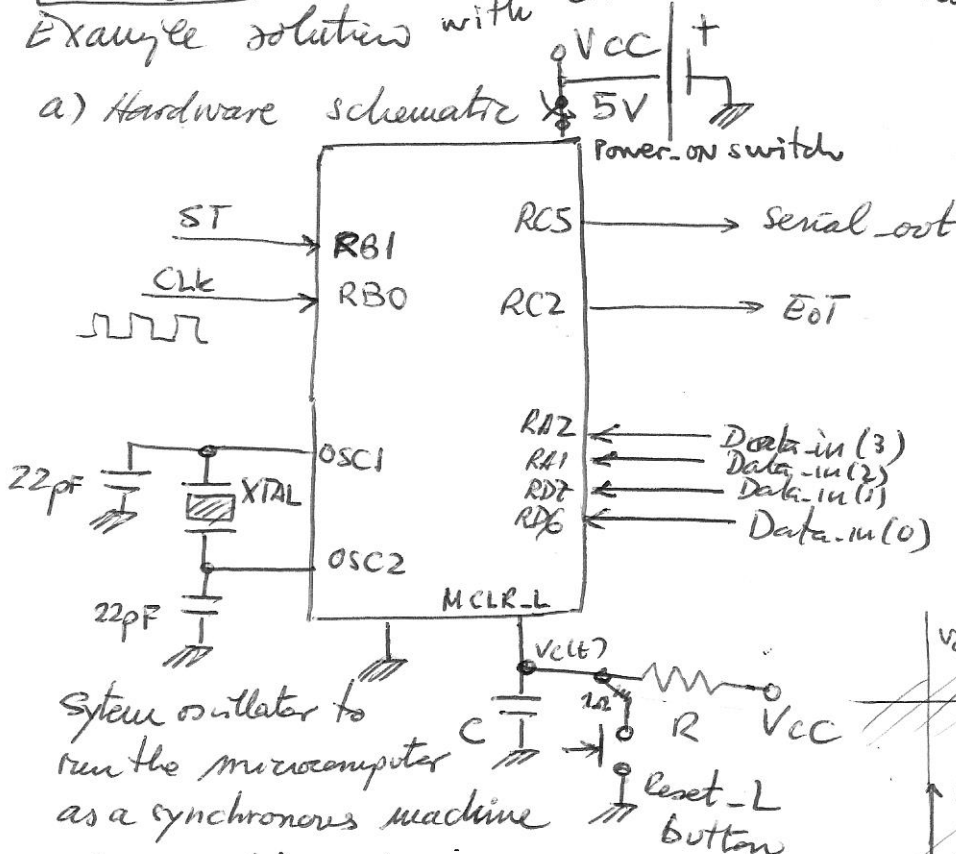 Example solution with
a) Hardware schematic
VCC
+
5V
Power_on switch
ST
RB1
RC5
Serial_out
CLK
RB0
RC2
EoT
RA2
Data_in(3)
RA1
Data_in(2)
RD7
Data_in(1)
RD6
Data_in(0)
OSC1
22pF
XTAL
OSC2
22pF
MCLR_L
Vc(t)
C
1Ω
R
VCC
Reset_L
button
Sytem oscillator to
run the microcomputer
as a synchronous machine